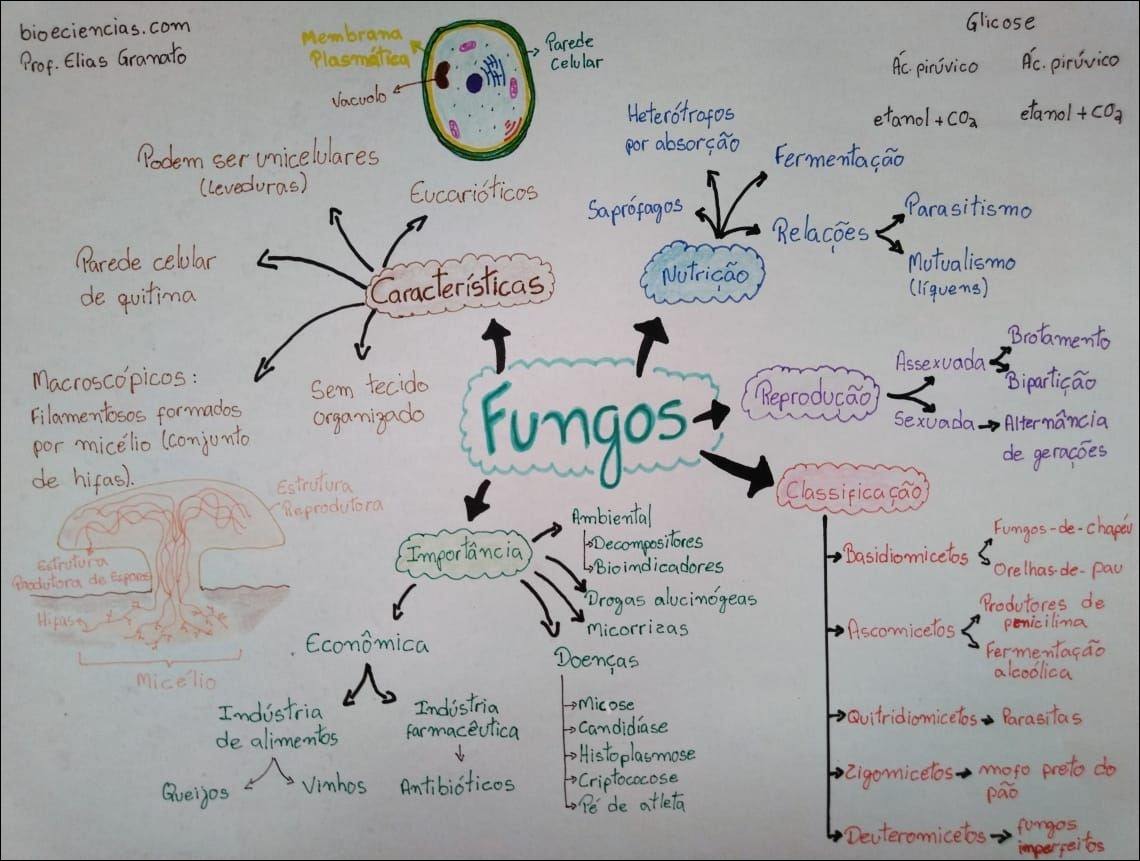 bioeciencias.com
Prof. Elias Granato
Membrana
Plasmática
Parede
celular
Vacuolo
Glicose
Ác. pirúvico
Ác. pirúvico
etanol + CO2
etanol + CO2
Podem ser unicelulares
(Leveduras)
Eucarióticos
Parede celular
de quitina
Características
Macroscópicos:
Filamentosos formados
por micélio (conjunto
de hifas).
Sem tecido
organizado
Heterótrafos
por absorção
Fermentação
Saprófagos
Relações
Parasitismo
Mutualismo
(líquens)
Nutrição
Fungos
Reprodução
Assexuada
Brotamento
Bipartição
Sexuada
Alternância
de gerações
Classificação
Basidiomicetos
Fungos-de-chapéu
Orelhas-de-pau
Ascomicetos
Produtores de
penicilina
Fermentação
alcoólica
Quitridiomicetos
Parasitas
Zigomicetos
mofo preto do
pão
Deuteromicetos
fungos
imperfeitos
Estrutura
Reprodutora
Estrutura
Produtora de Esporos
Hifas
Micélio
Importância
Ambiental
Decompositores
Bioindicadores
Drogas alucinógeas
Micorrizas
Doenças
Micose
Candidíase
Histoplasmose
Criptococose
Pé de atleta
Econômica
Indústria
de alimentos
Queijos
Vinhos
Indústria
farmacêutica
Antibióticos